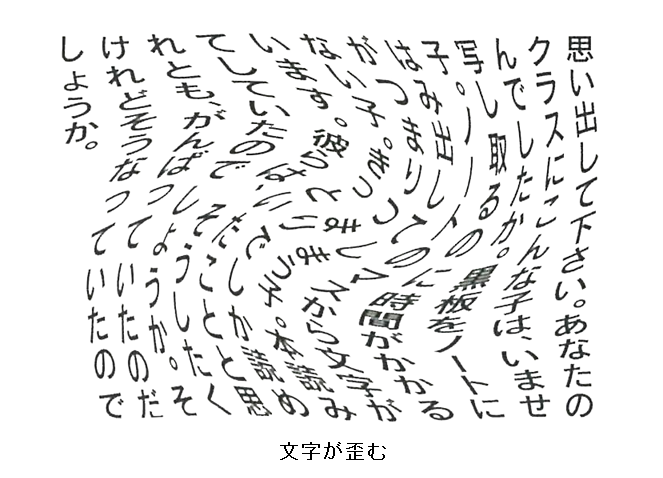 思い出して下さい。あなたの
クラスにこんな子は、いませ
んでしたか。黒板をノートに
写し取るのに時間がかかる
子。ノートのマスから文字が
はみ出してしまう子。本読み
がつまりつまりでしか読め
ない子。きっといたことと思
います。彼らは、そうしたく
てしていたのでしょうか。そ
れとも、がんばっていたのだ
けれどそうなっていたので
しょうか。
文字が歪む